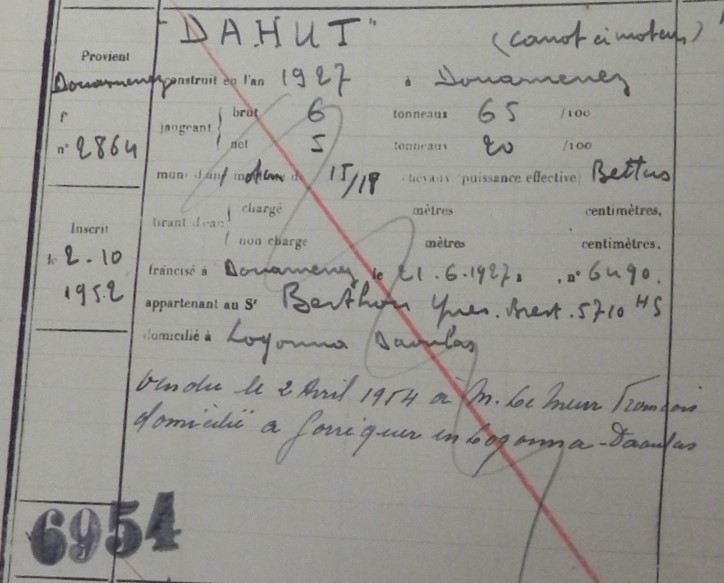 "DAHUT" (canot à moteur)
Provient
Douarnenez
f°
n° 2864
Inscrit
le 2-10
1952
construit en l'an 1927 à Douarnenez
jaugeant { brut 6 tonneaux 65 /100
net 5 tonneaux 20 /100
muni d'un moteur de 15/18 chevaux (puissance effective) Bettus
tirant d'eau { chargé mètres centimètres,
non chargé mètres centimètres.
francisé à Douarnenez le 21.6.1927, n° 6490.
appartenant au Sr Berthou Yves. Brest. 5710 HS
domicilié à Logonna Daoulas
Vendu le 2 Avril 1954 à M. Le Meur François
domicilié à Gorréquer en Logonna-Daoulas
6954